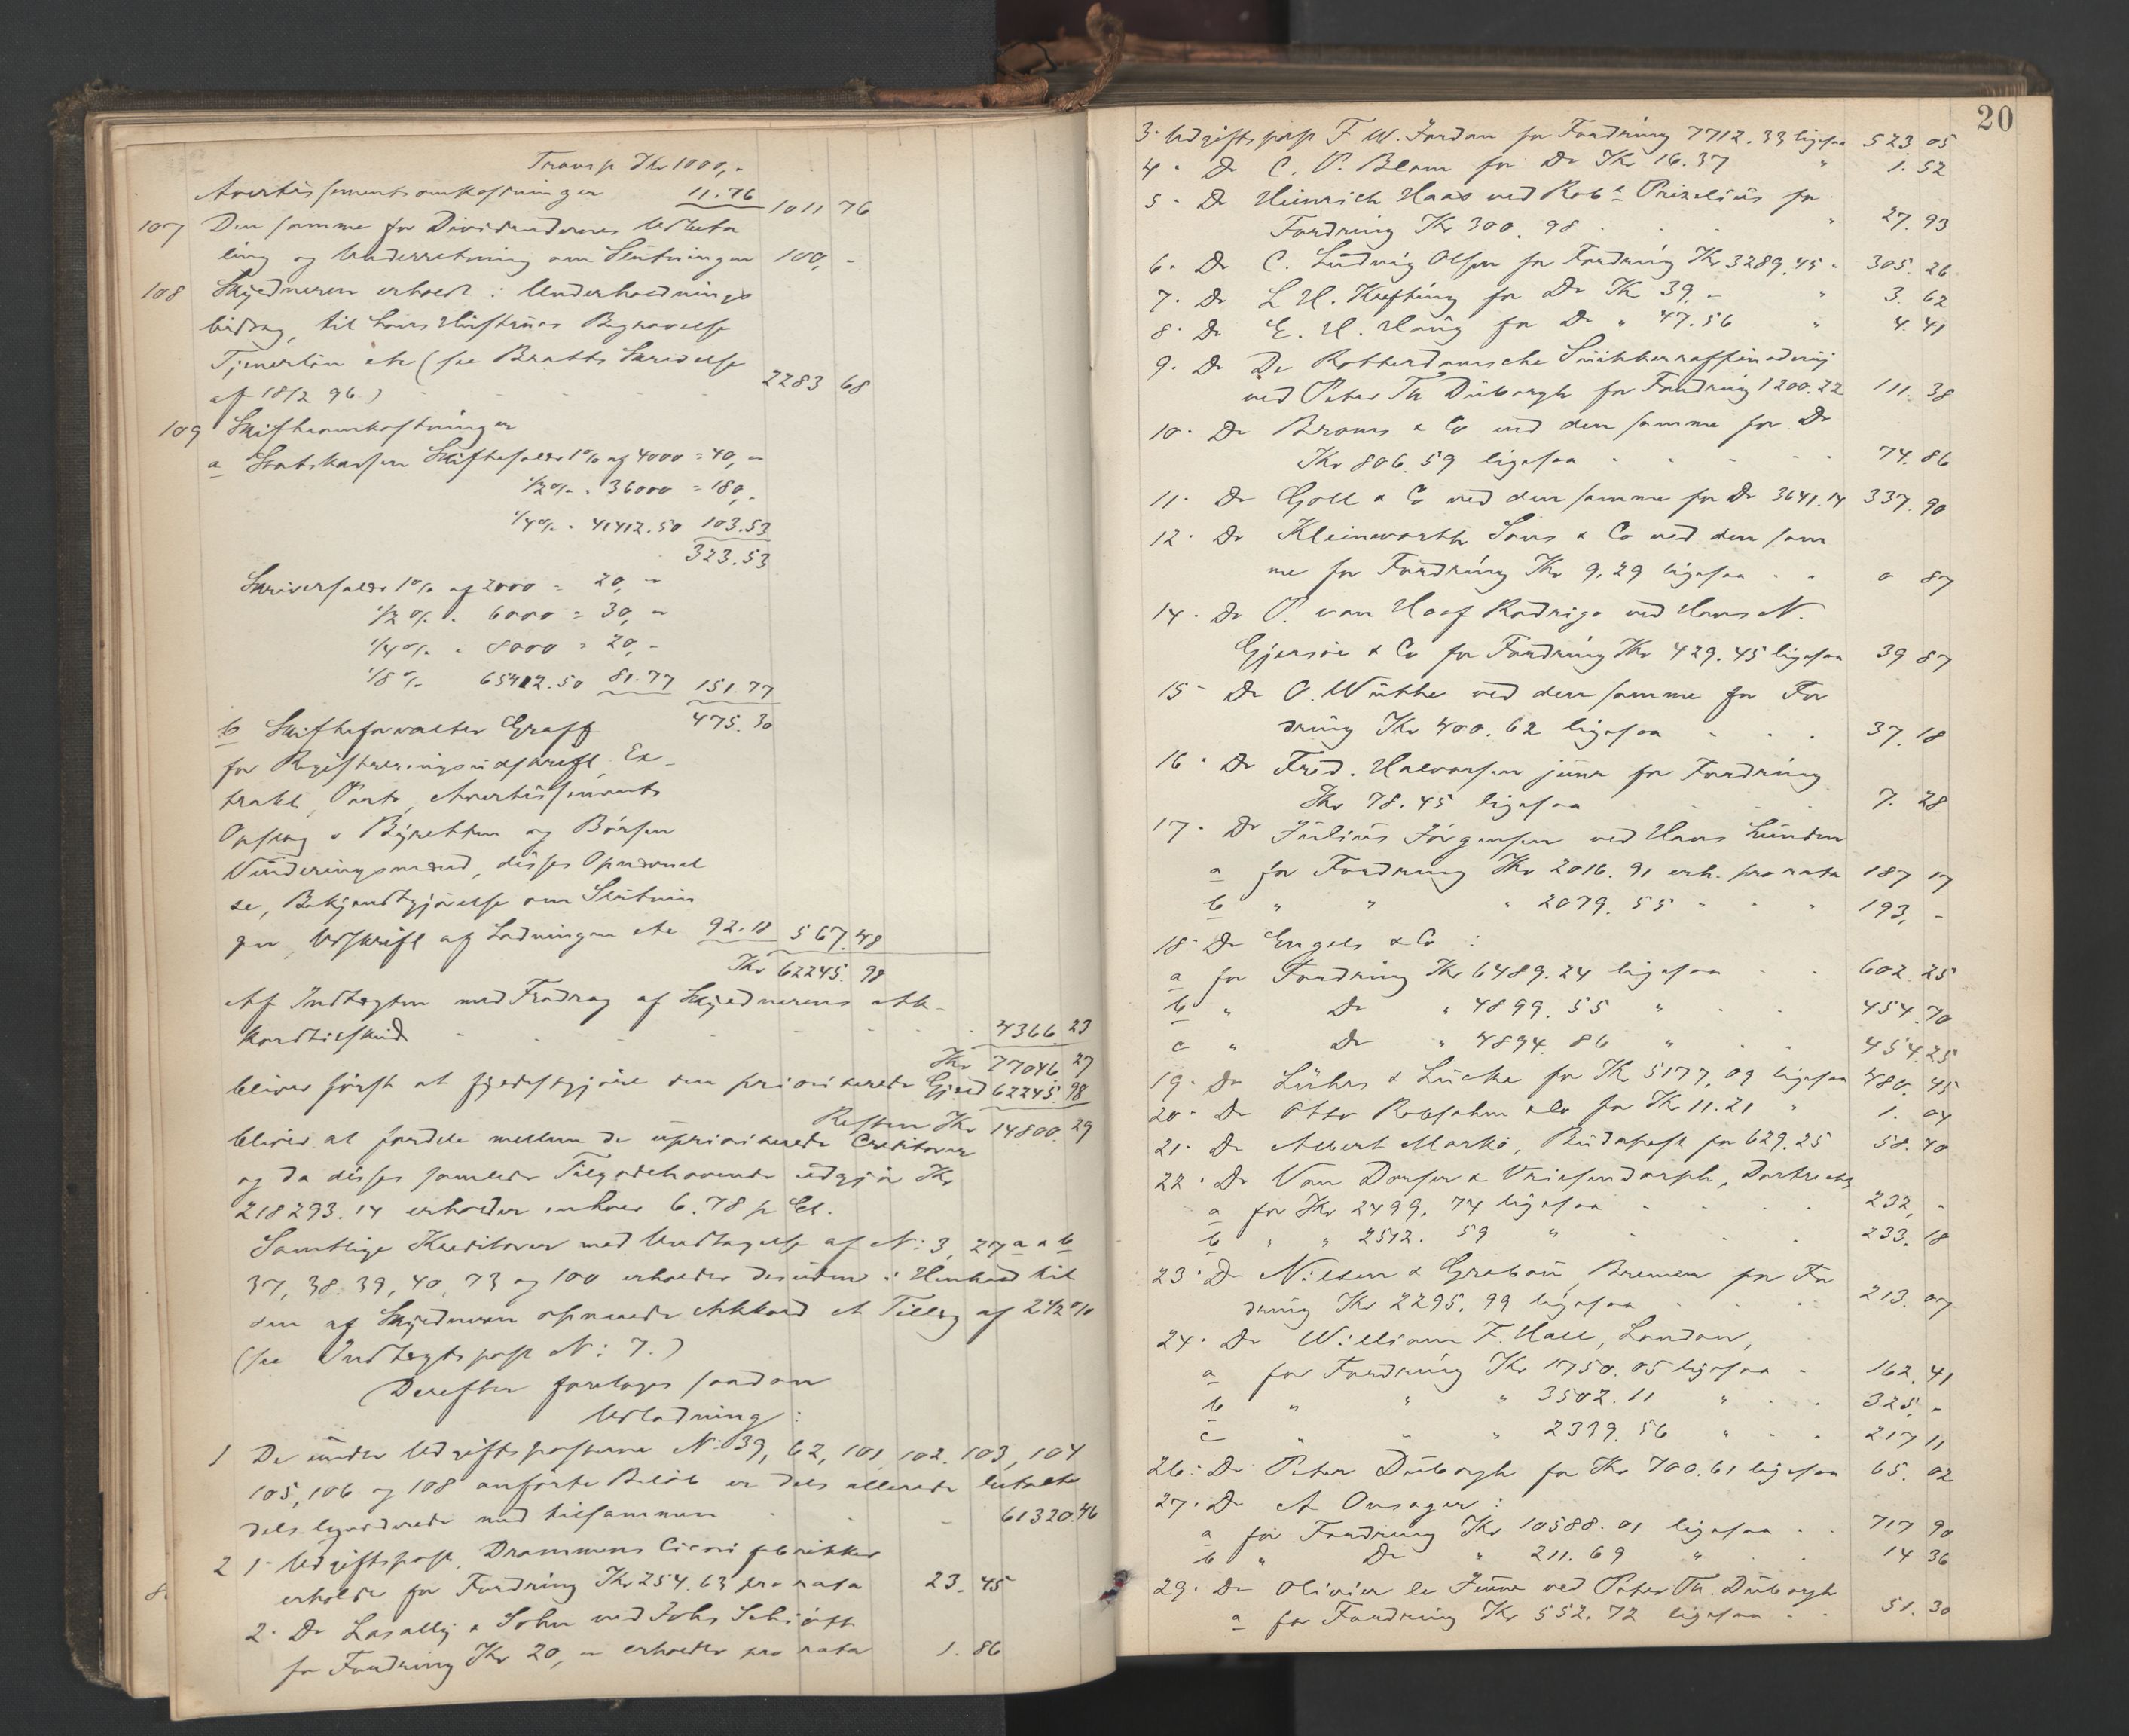 Transp Kr 1000,-
Avertissementsomkostninger 11.76 1011 76
107 Den samme for Dividendernes Udbeta
ling og Underretning om Slutningen 100,-
108 Skyldneren erholdt i Underholdnings
bidrag, til hans Hustrues Begravelse
Tjenerløn etc (se Bratts Skrivelse
af 18/2 96.) 2283 68
109 Skifteomkostninger
a Statskassen Skiftesalær 1% af 4000 = 40,-
1/2% " 36000 = 180,-
1/4% " 41412.50 103.53
323.53
Skriversalær 1% af 2000 = 20,-
1/2% " 6000 = 30,-
1/4% " 8000 = 20,-
1/8% 65412.50 81.77 151.77
475.30
b Skifteforvalter Graff
for Registreringsudskrift, Ex-
trakt, Porto, Avertissements
Opslag i Byretten og Børsen
Vurderingsmænd, disses Opnævnel
se, Bekjendtgjørelse om Slutnin
gen, Udskrift af Ladningen etc 92.18 567.48
Kr 62245 98
Af Indtægten med Fradrag af Skyldnerens Ak-
kordtilskud 4366.23
Kr 77046 27
bliver først at fyldestgjøre den prioriterede Gjæld 62245.98
Resten Kr 14800.29
bliver at fordele mellem de uprioriterede Creditorer
og da disses samlede Tilgodehavende udgjør Kr
218293.14 erholder enhver 6.78 p Ct.
Samtlige Kreditorer med Undtagelse af N: 3, 27 a & b
37, 38, 39, 40, 73 og 100 erholder desuden i Henhold til
den af Skyldneren opnaaede Akkord et Tillæg af 2 1/2 %
(se Indtægtspost N: 7.)
Derefter foretages saadan
Udlodning:
1 De under Udgiftsposterne N: 39, 62, 101, 102, 103, 104
105, 106 og 108 anførte Beløb er dels allerede betalte
dels liqviderede med tilsammen 61320.46
2 1- Udgiftspost, Drammens Cicorifabrikker
erholder for Fordring Kr 254.63 pro rata 23.45
8.
2- Do Lasally & Sohn ved Johs Schiøtt
for Fordring Kr 20,- erholder pro rata 1.86
20
3- Udgiftspost F W. Jordan for Fordring 7712.33 ligesaa 523.05
4- Do C. P. Blom for Do Kr 16.37 " 1.52
5- Do Heinrich Haas ved Robt Prizelius for
Fordring Kr 300.98 " 27.93
6- Do C. Ludvig Olsen for Fordring Kr 3289.45 " 305.26
7- Do L H. Kiefting for Do Kr 39,- " 3.62
8- Do E. H. Haug for Do " 47.56 " 4.41
9- Do De Rotterdamsche Suikkerraffinaderij
ved Peter Th Duborgh for Fordring 1200.22 111.38
10- Do Broms & Co ved den samme for Do
Kr 806.59 ligesaa 74.86
11- Do Goll & Co ved den samme for Do 3641.14 337.90
12- Do Kleinworth Sons & Co ved den sam
me for Fordring Kr 9.29 ligesaa 0 87
14- Do P. van Hoof Rodrigo ved Hans N.
Gjersøe & Co for Fordring Kr 429.45 ligesaa 39 87
15- Do O. Wüthe ved den samme for For
dring Kr 400.62 ligesaa 37.18
16- Do Fred. Halvorsen junr for Fordring
Kr 78.45 ligesaa 7.28
17- Do Julius Jørgensen ved Hans Lunden
a for Fordring Kr 2016.91 erh. pro rata 187 17
b " " " 2079.55 " " " 193,-
18- Do Engels & Co:
a for Fordring Kr 6489.24 ligesaa 602.25
b " Do " 4899.55 " 454.70
c " Do " 4894.86 " 454.25
19- Do Lührs & Lücke for Kr 5177,09 ligesaa 480.45
20- Do Otto Robsahm & Co for Kr 11.21 " 1.04
21- Do Albert Markó, Budapest for 629.25 58.40
22- Do Van Dorsser & Vriesendorph, Dortrecht
a for Kr 2499.74 ligesaa 232,-
b " " 2512.59 " 233.18
23- Do Nilsen & Grabau, Bremen for For
dring Kr 2295.99 ligesaa 213.07
24- Do William F. Hall, London,
a for Fordring Kr 1750.05 ligesaa 162.41
b " " " 3502.11 " 325,-
c " " " 2339.56 " 217 11
26- Do Peter Duborgh for Kr 700.61 ligesaa 65.02
27- Do A Onsager:
a for Fordring Kr 10588.01 ligesaa 717 90
b " Do " 211.69 " 14 36
29- Do Olivier le Jeune ved Peter Th. Duborgh
a for Fordring Kr 552.72 ligesaa 51.30